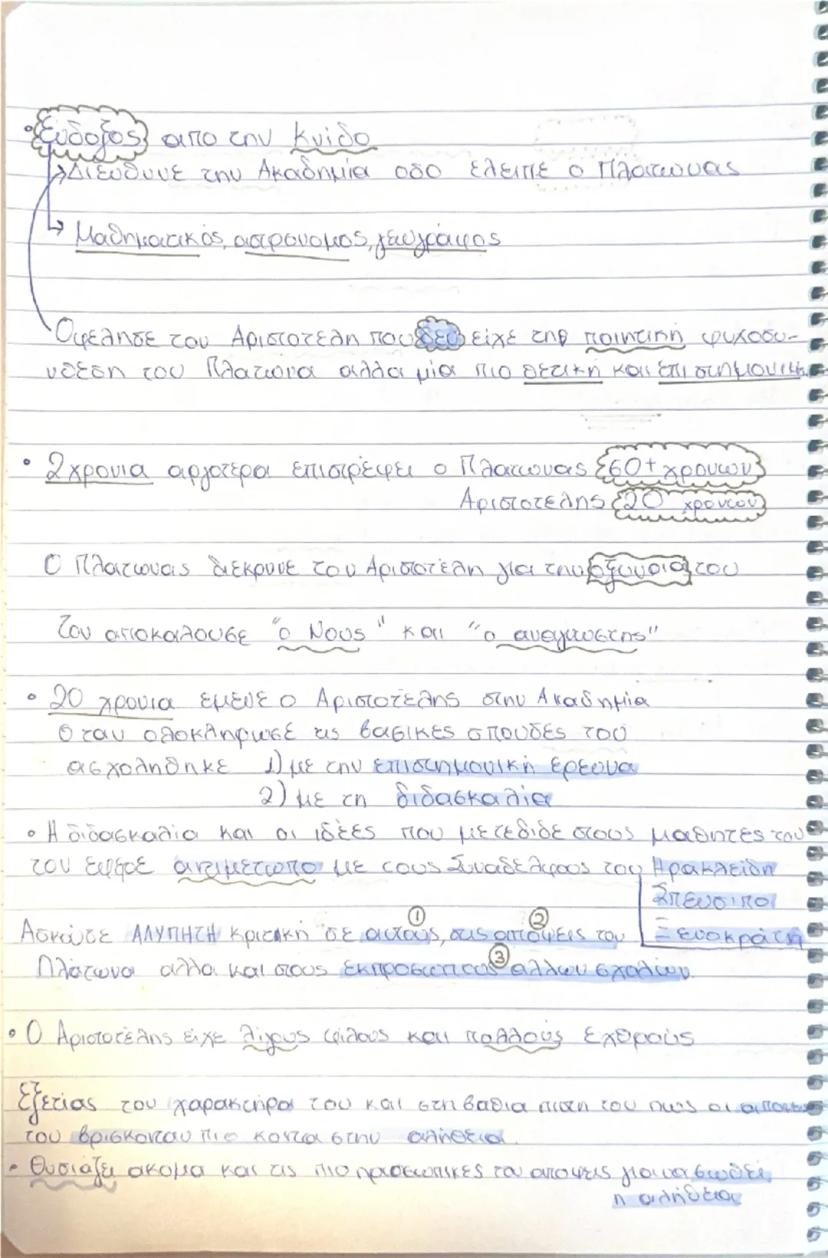 • Εύδοξος απο την Κνίδο
Διευθυνε την Ακαδημία οσο ελειπε ο Πλατωνας
Μαθηματικός, αστρονομος, γεωγράφος
Οφελησε τον Αριστοτελη που δεν είχε την ποιητική ψυχοσυ-
νθεση του Πλατωνα αλλα μία πιο θετική και επιστημονική
• 2 χρονια αργοτερα επιστρέφει ο Πλατωνας 60+ χρονων
Αριστοτελης 20 χρονων
Ο Πλατωνας διεκρινε τον Αριστοτέλη για την οξυνοια του
Τον αποκαλουσε "ο Νους" και "ο αναγνωστης"
• 20 χρονια εμεινε ο Αριστοτέλης στην Ακαδημία
Οταν ολοκληρωσε τις βασικες σπουδες του
ασχοληθηκε 1) με την επιστημονική έρευνα
2) με τη διδασκαλία
• Η διδασκαλία και οι ιδέες που μετεδιδε στους μαθητες του
τον εφερε αντιμετωπο με τους Συναδελφους του Ηρακλείδη
Σπευσιπο
Ξενοκράτη
① ②
Ασκουσε ΑΛΥΠΗΤΗ κριτική σε αυτους, στις αποψεις του
Πλάτωνα αλλα και στους εκπροσωπους ③ αλλων σχολών
• Ο Αριστοτέλης είχε λίγους φίλους και πολλούς εχθρούς
Εξετίας του χαρακτήρα του και στη βαθια πιστη του πως οι αποψεις
του βρισκονταν πιο κοντα στην αλήθεια.
• Θυσιάζει ακομα και τις πιο προσωπικες του αποψεις για να σωθεί
η αλήθεια